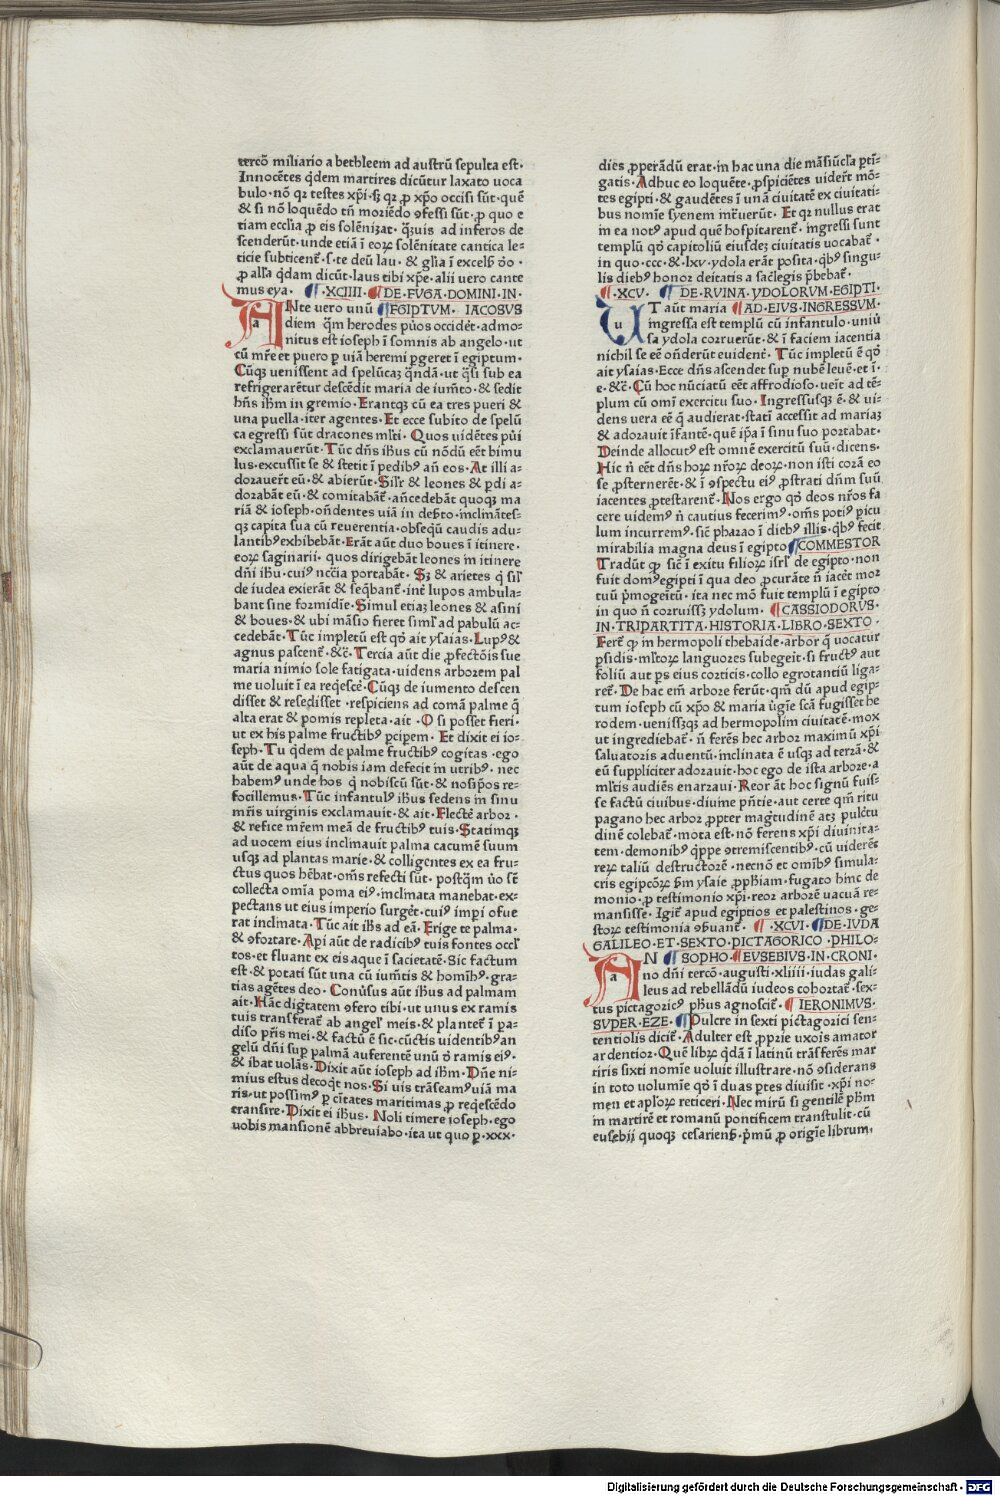 tercō miliario a bethleem ad austrū sepulta est·
Innocētes q̄dem martires dicūtur laxato uoca
bulo·nō qꝛ testes xp̄i·ſꝫ qꝛ ꝓ xp̄o occisi sūt·quē
& si nō loquēdo tn̄ moriēdo ꝯfessi sūt·ꝓ quo e
tiam ecclīa ꝓ eis solēnizat· q̄uis ad inferos de
scenderūt·unde etiā ī eoꝝ solēnitate cantica le⸗
ticie subticent̄·s·te deū lau·& glīa ī excels̄
ꝓ all'a q̄dam dicūt·laus tibi xp̄e·alii uero cante
mus eya· ¶·XCIIII·¶DE·FVGA·DOMINI·IN·
ANte uero unū ¶EGIPTVM· IACOBVS
diem q̄m herodes pu̇os occidēt·admo⸗
nitus est ioseph ī somnis ab angelo·ut
cū mr̄e et puero ꝑ uiā heremi ꝑgeret ī egiptum·
Cūqꝫ uenissent ad spelūcaꝫ q̄ndā·ut q̄si sub ea
refrigerarētur descēdit maria de iumēto·& sedit
hn̄s ihm̄ in gremio·Erantqꝫ cū ea tres pueri &
una puella·iter agentes·Et ecce subito de spelū
ca egressi sūt dracones ml̄ti· Quos uidētes pu̇i
exclamauerūt·Tūc dn̄s ihūs cū nōdū eēt bimu
lus·excussit se & stetit ī pedibꝰ an̄ eos·At illi a⸗
dorauer̄t eū·& abierūt·Sil'r & leones & ꝑdi a⸗
dorabāt eū·& comitabāt̄·an̄cedebāt quoqꝫ ma
riā & ioseph·on̄dentes uiā in deserto·inclināteſ⸗
qꝫ capita sua cū reuerentia·obseqū caudis adu⸗
lantibꝰexhibebāt·Erāt aūt duo boues ī itinere·
eoꝝ saginarii· quos dirigebāt leones in itinere
dn̄i ihū·cuiꝰ nc̄cia portabāt· Sꝫ & arietes q̄ sil'
de iudea exierāt & seq̄bant̄·int̄ lupos ambula⸗
bant sine formidīe·Simul etiaꝫ leones & asini
& boues·& ubi māsio fieret siml' ad pabulū ac⸗
cedebāt·Tūc impletū est qd̄ ait ysaias·Lupꝰ&
agnus pascent̄·&c̄·Tercia aūt die ꝓfectōis sue
maria nimio sole fatigata·uidens arborem pal
me uoluit ī ea reqēsce̅·Cūqꝫ de iumento descen
disset & resedisset ·respiciens ad comā palme q̄
alta erat & pomis repleta·ait ·O si posset fieri·
ut ex his palme fructibꝰ ꝑcipem· Et dixit ei io⸗
seph·Tu q̄dem de palme fructibꝰ cogitas ·ego
aūt de aqua q̄ nobis iam defecit in utribꝰ· nec
habemꝰ unde hos q̄ nobiscū sūt·& nosip̄os re⸗
focillemus·Tūc infantulꝰ ihūs sedens in sinu
mr̄is uirginis exclamauit·& ait·Flecte̅ arbor·
& refice mr̄em meā de fructibꝰ tuis·Statimqꝫ
ad uocem eius inclinauit palma cacumē suum
usqꝫ ad plantas marie·& colligentes ex ea fru⸗
ctus quos hēbat·om̄s refecti sūt· postq̄m u̇o sē
collecta omīa poma eiꝰ·inclinata manebat·ex⸗
pectans ut eius imperio surget̄·cuiꝰ imꝑi ofue
rat inclinata·Tūc ait ihūs ad eā·Erige te palma·
& ꝯfortare·Aperi aūt de radicibꝰ tuis fontes occl'
tos·et fluant ex eis aque ī sacietatē·Sic factum
est·& potati sūt una cū iumētis & hominibꝰ·gra⸗
tias agētes deo· Conu̇sus aūt ihūs ad palmam
ait·Hāc dignitatem ꝯfero tibi·ut unus ex ramis
tuis transferat̄ ab angel' meis·& plantet̄ ī pa⸗
diso pr̄is mei·& factū ē sic·cūctis uidentibꝰan
gelū dn̄i suꝑ palmā auferentē unū ꝺ̄ ramis eiꝰ·
& ibat uolās·Dixit aūt ioseph ad ihm̄·Dn̄e ni⸗
mius estus decoq̄t nos·Si uis trāseamꝰuiā ma
ris·ut possimꝰ ꝑ ciuitates maritimas ꝓ reqēscēdo
transire·Dixit ei ihūs· Noli timere ioseph·ego
uobis mansionē abbreuiabo·ita ut quo ꝑ·xxx·
dies ꝓperādū erat·in hac una die māsiūcl'a ꝑti⸗
gatis·Adhuc eo loquēte·ꝓspiciētes uider̄t mō⸗
tes egipti·& gaudētes ī unā ciuitatē ex ciuitati⸗
bus nomīe syenem intrauerūt· Et qꝛ nullus erat
in ea notꝰ apud quē hospitarent̄·ingressi sunt
templū qd̄ capitoliū eiusdeꝫ ciuitatis uocabat̄·
in quo·ccc·& ·lxv·ydola erāt posita·qbꝰ singu⸗
lis diebꝰ honor deitatis a sac̄legis p̄bebat̄·
¶·XCV· ¶ DE·RVINA·YDOLORVM·EGIPTI·
UT aūt maria ¶AD·EIVS·INGRESSVM·
ingressa est templū cū infantulo·uniū
sa ydola corruerūt·& ī faciem iacentia
nichil se eē on̄derūt euident̄·Tūc impletū ē qd̄
ait ysaias·Ecce dn̄s ascendet suꝑ nubē leuē·et ī⸗
e·&c̄·Cū hoc nūciatū eēt affrodioso·ueīt ad tē⸗
plum cū omī exercitu suo·Ingressusqꝫ ē·& ui⸗
dens uera eē q̄ audierat·stati accessit ad mariaꝫ
& adorauit īfantē·quē ip̄a ī sinu suo portabat·
Deinde allocutꝰ est omnē exercitū suū·dicens·
Hic n̄ eēt dn̄s hoꝝ nr̄oꝝ deoꝝ·non isti corā eo
se ꝓsternerēt·& ī ꝯspectu eiꝰ ꝓstrati dn̄m suū
iacentes ꝓtestarent̄·Nos ergo qd̄ deos nr̄os fa
cere uidemꝰ n̄ cautius fecerimꝰ·om̄s potiꝰ picu
lum incurremꝰ·sic̄ pharao ī diebꝰ illis·qbꝰ fecit
mirabilia magna deus ī egipto¶COMMESTOR
Tradūt qꝫ sic̄ ī exitu filioꝝ isrl' de egipto·non
fuit domꝰegipti ī qua deo ꝓcurāte n̄ iacēt mor
tuū p̄mogeītū·ita nec mō fuit templū ī egipto
in quo n̄ corruissꝫ ydolum· ¶CASSIODORVS·
IN·TRIPARTITA·HISTORIA·LIBRO·SEXTO·
Fert̄ qꝫ in hermopoli thebaide·arbor q̄ uocatur
psidis·ml̄toꝝ languores subegeit·si fructꝰ aut
foliū aut ps eius corticis·collo egrotantiū liga⸗
ret̄·De hac em̄ arbore ferūt·qm̄ dū apud egip⸗
tum ioseph cū xp̄o & maria u̇gīe scā fugisset he
rodem·uenissꝫqꝫ ad hermopolim ciuitatē·mox
ut ingrediebat̄·n̄ ferēs hec arbor maximū xp̄i
saluatoris aduentū·inclinata ē usqꝫ ad terrā·&
eū suppliciter adorauit·hoc ego de ista arbore·a
ml̄tis audiēs enarraui·Reor āt hoc signū fuiſ⸗
se factū ciuibus·diuine pn̄tie·aut certe qm̄ ritu
pagano hec arbor ꝓpter magtudinē atqꝫ pulc̄tu
dinē colebat̄·mota est·nō ferens xp̄i diuinita⸗
tem·demonibꝰ q̄ppe ꝯtremiscentibꝰ·cū uiderēt
reꝝ taliū destructorē·necnō et omībꝰ simula⸗
cris egipcōꝝ sm̄ ysaie ꝓphiam·fugato hinc de
monio·ꝓ testimonio xp̄i·reor arborē uacuā re⸗
mansisse·Igit̄ apud egiptios et palestinos·ge⸗
stoꝝ testimonia ꝯbuant̄· ¶·XCVI·¶DE·IVDA
GALILEO·ET·SEXTO·PICTAGORICO·PHILO⸗
AN ¶SOPHO·¶EVSEBIVS·IN·CRONI·
no dn̄i tercō·augusti·xliiii·iudas gali⸗
leus ad rebellādū iudeos cohortat̄·sex⸗
tus pictagoricꝰ ph̄us agnoscit̄·¶ IERONIMVS·
SVPER·EZE·¶Pulcre in sexti pictagorici sen⸗
tentiolis dicit̄·Adulter est ꝓprie uxoris amator
ardentior·Quē librꝝ q̄dā ī latinū trāsferēs mar
tiris sixti nomīe uoluit illustrare·nō ꝯsiderans
in toto uolumīe qd̄ ī duas ꝑtes diuisit·xp̄i no⸗
men et apl'oꝝ reticeri·Nec mirū si gentilē ph̄m
in martirē et romanū pontificem transtulit·cū
eusebii quoqꝫ cesarienſ·p̄mū ꝓ origīe librum·